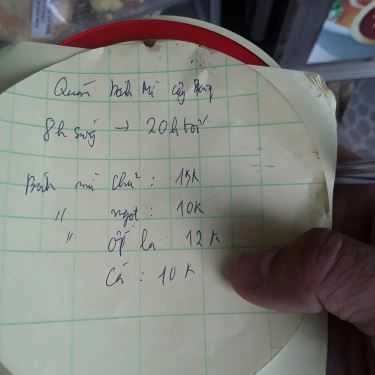 Quán bánh mì cây Bàng
8h sáng → 20h tối
Bánh mì chả : 15K
〃 ngọt : 10K
〃 ốp la 12K
Cá : 10K